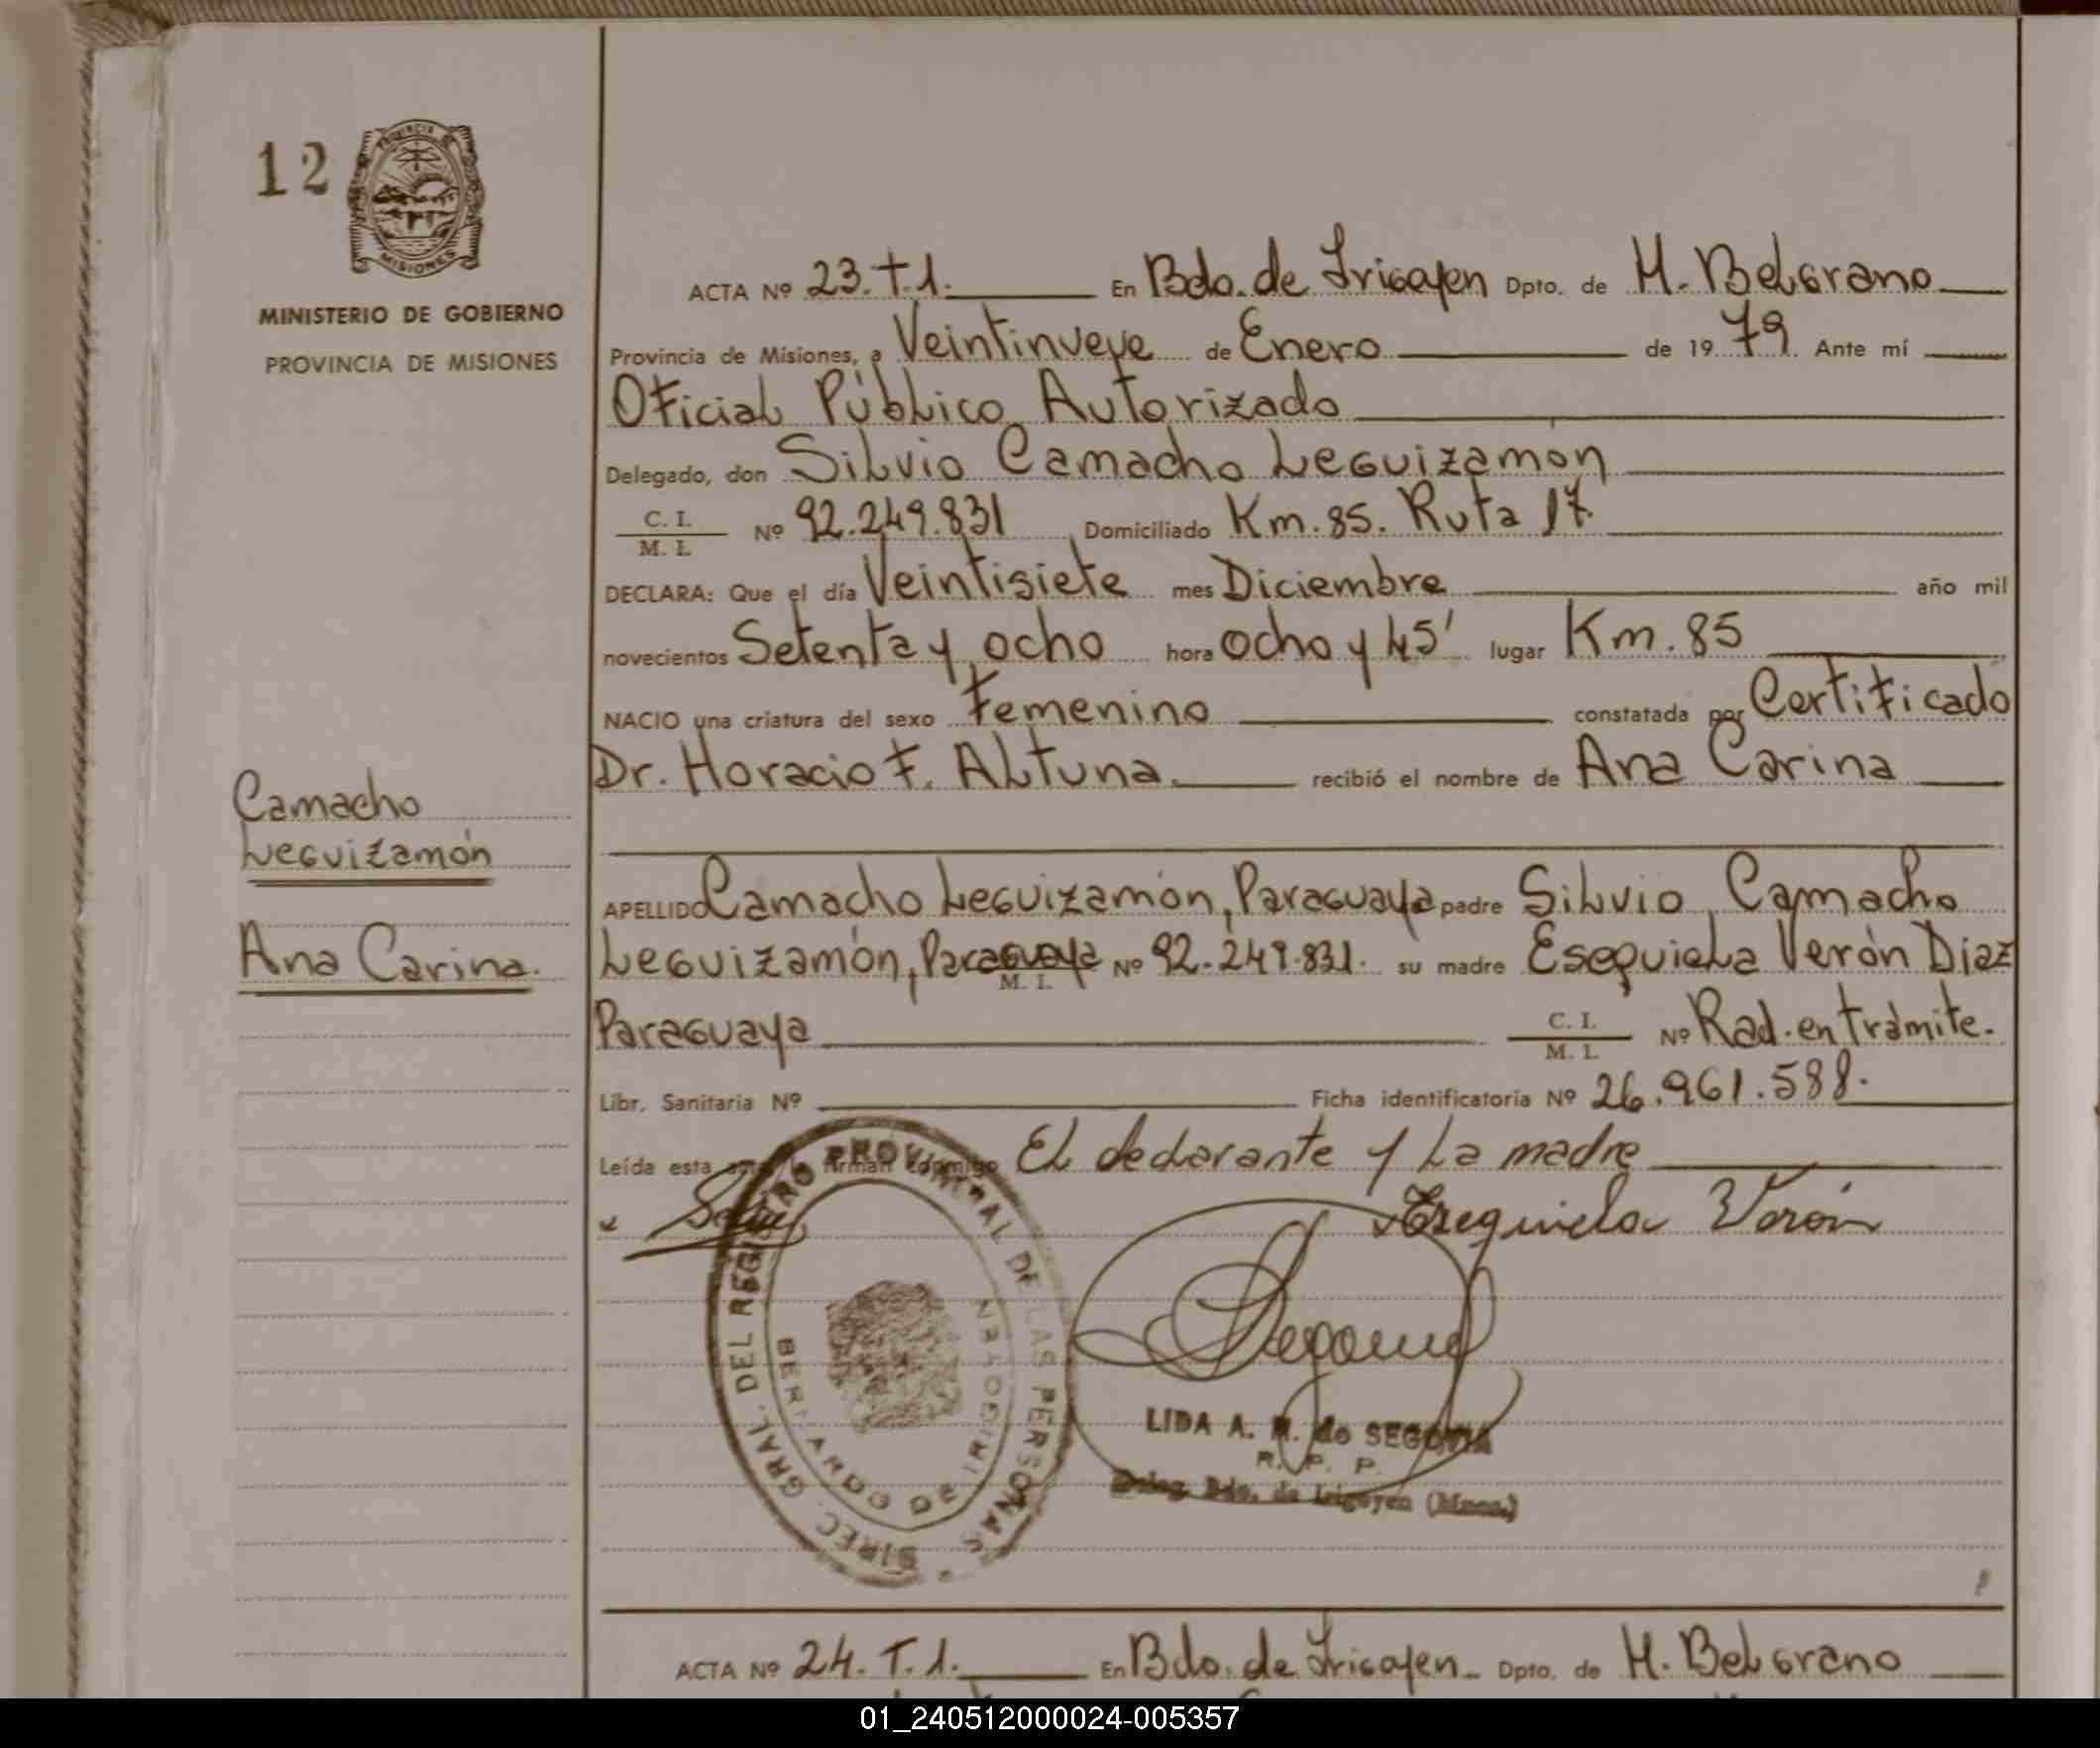 12
PROVINCIA DE
MISIONES
MINISTERIO DE GOBIERNO
PROVINCIA DE MISIONES
ACTA Nº 23. T.1. En Bdo. de Irigoyen Dpto. de M. Belgrano
Provincia de Misiones, a Veintinueve de Enero de 1979 Ante mí
Oficial Público Autorizado
Delegado, don Silvio Camacho Leguizamón
C. I.
M. I. Nº 92.249.831 Domiciliado Km. 85. Ruta 17.
DECLARA: Que el día Veintisiete mes Diciembre año mil
novecientos Setenta y ocho hora ocho y 45' lugar Km. 85
NACIO una criatura del sexo Femenino constatada por Certificado
Dr. Horacio F. Altuna. recibió el nombre de Ana Carina
Camacho
Leguizamón
Ana Carina.
APELLIDO Camacho Leguizamón, Paraguaya padre Silvio Camacho
Leguizamón, Paraguaya M. I. Nº 92.249.831. su madre Esequiela Verón Diaz
Paraguaya C. I.
M. I. Nº Rad. en trámite.
Libr. Sanitaria Nº Ficha identificatoria Nº 26.961.588.
Leída esta firman conmigo El declarante y La madre
Ezequiela Verón
DIREC. GRAL. DEL REGISTRO PROVINCIAL DE LAS PERSONAS
BERNARDO DE IRIGOYEN
LIDA A. M. de SEGOVIA
R. P. P.
Deleg. Bdo. de Irigoyen (Mnes.)
ACTA Nº 24. T.1. En Bdo. de Irigoyen Dpto. de M. Belgrano
01_240512000024-005357